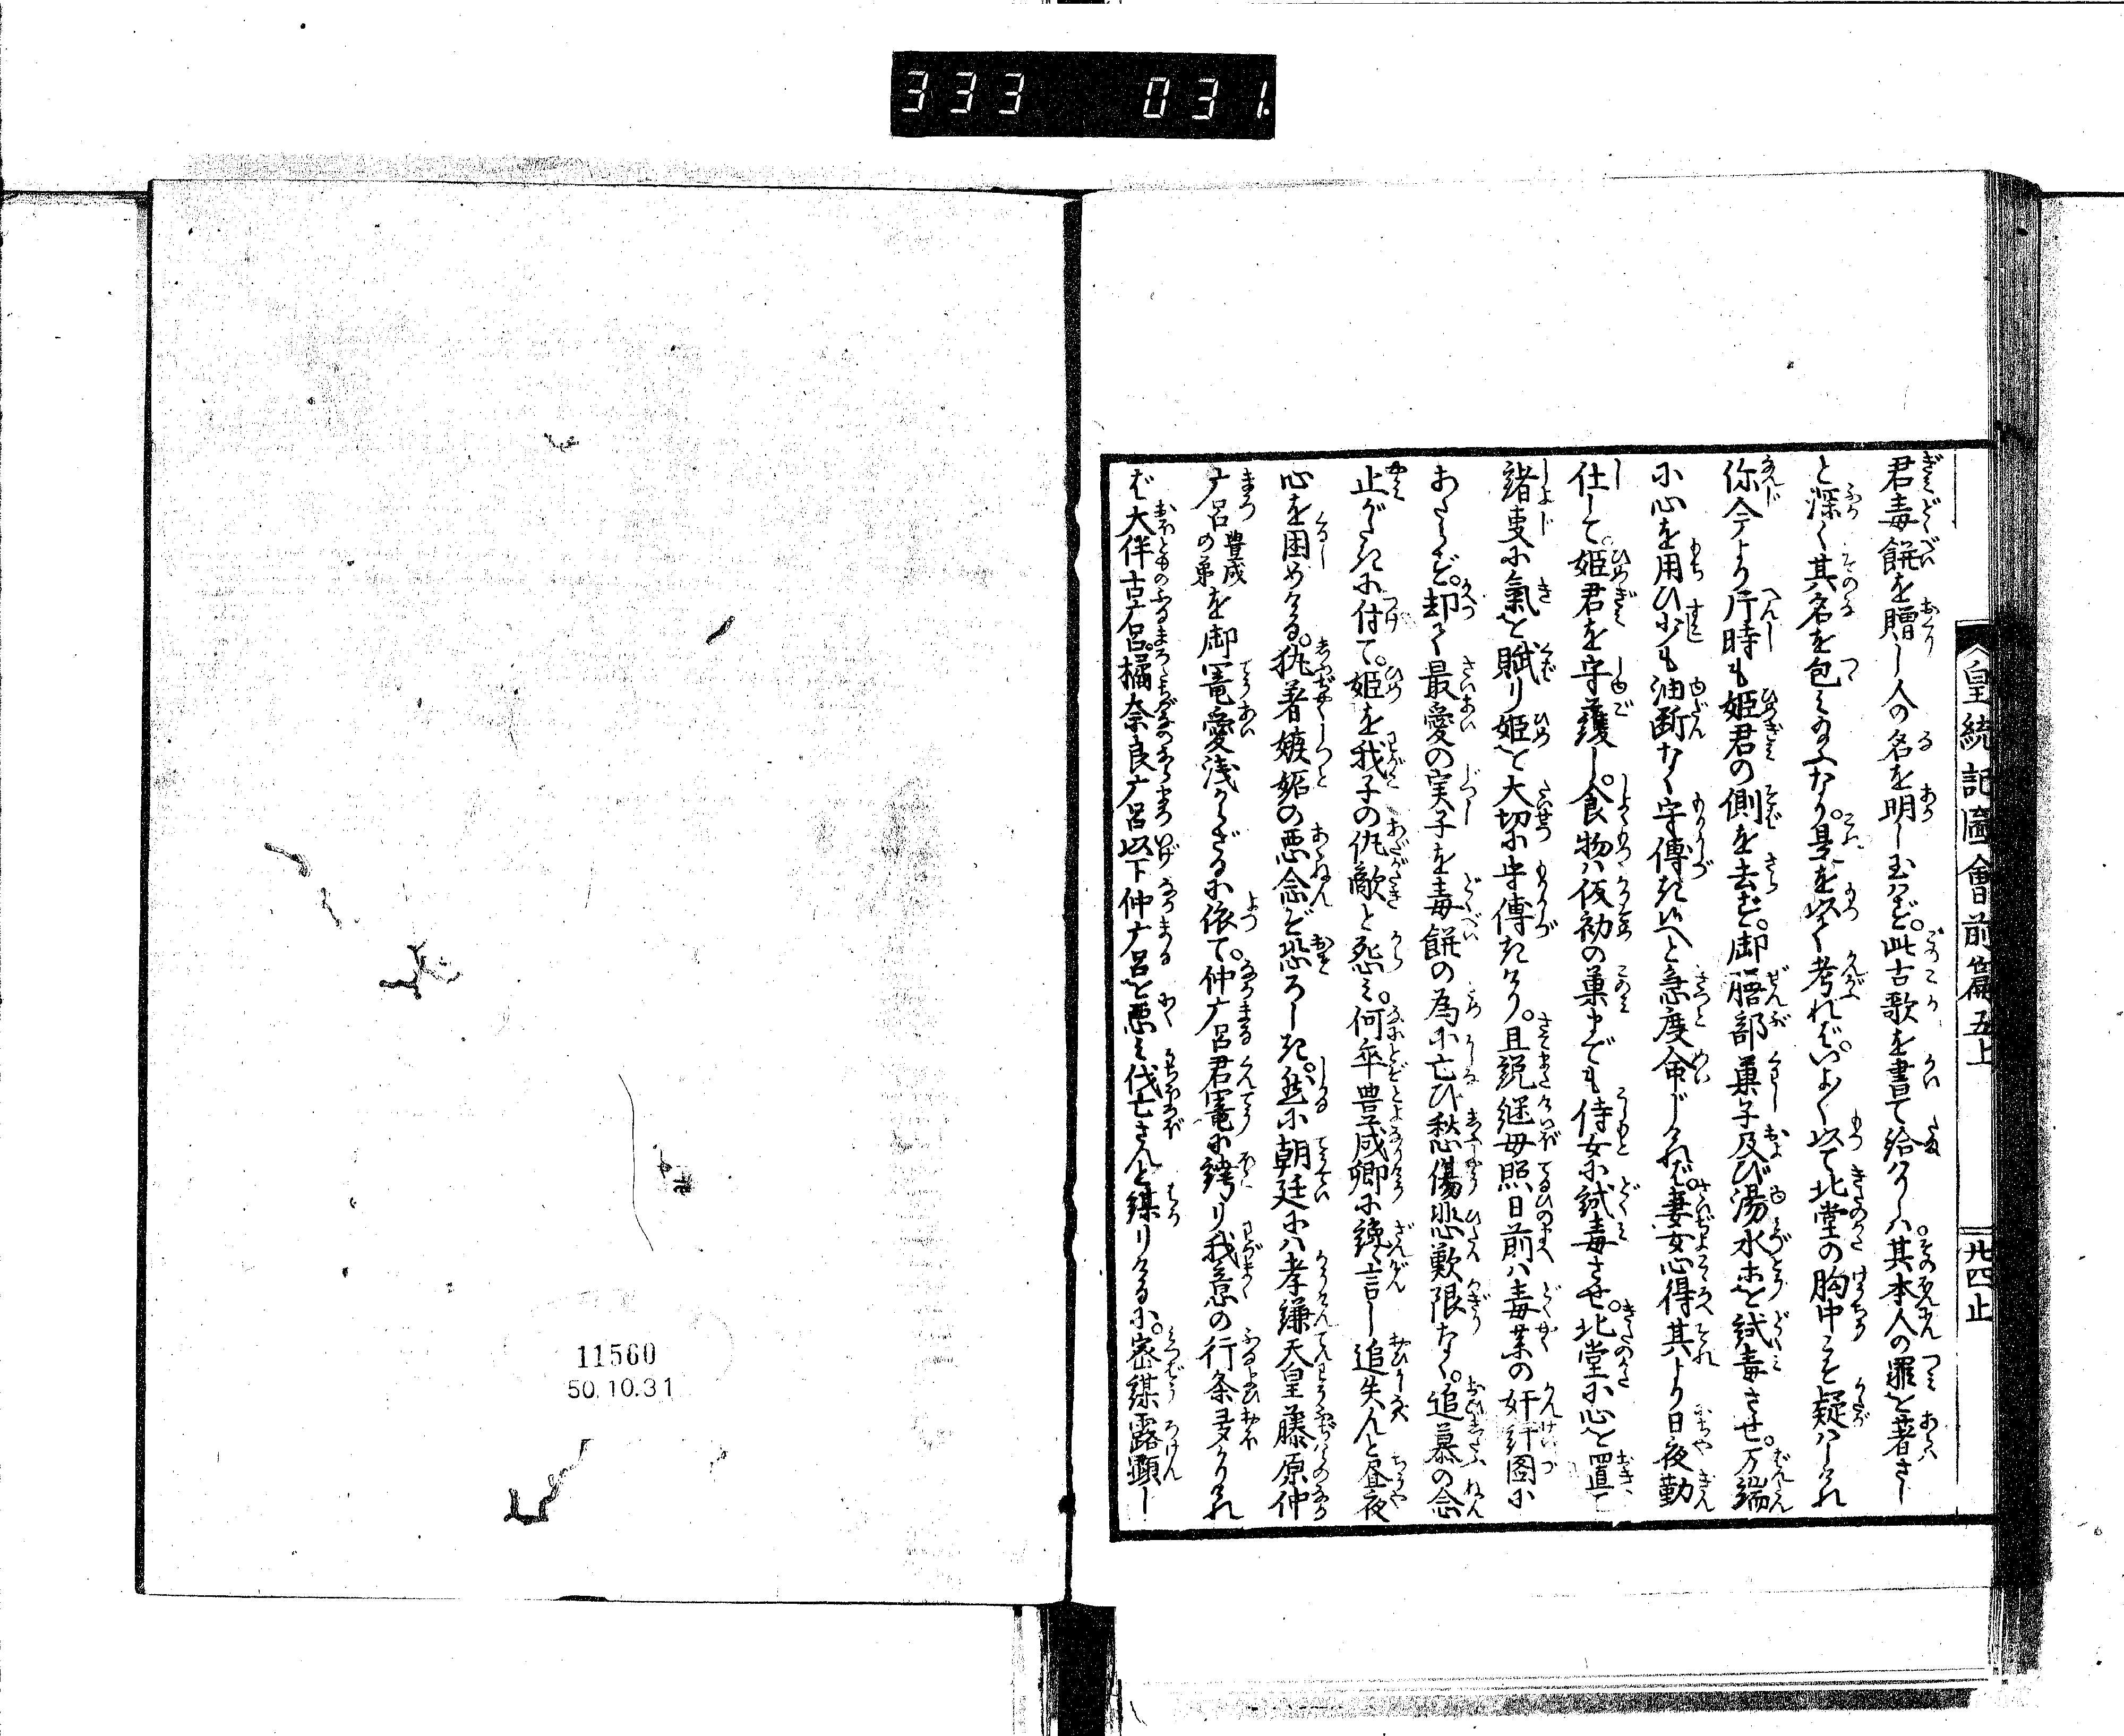 333 031.
皇統記圖會前篇五上
廿四止
君毒餅を贈し人の名を明し玉はず。此古歌を書て給ひしハ其本人の罪を著さじ
と深く其名を包み玉ふなり。是を以て考れバいよ〱以て北堂の胸中こそ疑ハしけれ
你今より片時も姫君の側を去ず。御膳部菓子及び湯水まで試毒させ。万端
に心を用ひ少も油断なく守傅き候へと急度命じけれバ。妻女心得其より日夜勤
仕して。姫君を守護し。食物ハ仮初の菓までも侍女に試毒させ。北堂に心を置て
諸事に氣を賦り姫を大切に守傅きけり。且説継母照日前ハ毒業の奸計圖に
あたらず。却て最愛の実子を毒餅の為に亡び愁傷悲歎限なく。追慕の念
止がたきに付て。姫を我子の仇敵と怨み。何卒豊成卿に讒言し追失んと昼夜
心を困めける。執着嫉妬の悪念ぞ恐ろしき。然に朝廷にハ孝謙天皇藤原仲
广呂豊成の弟を御寵愛浅からざるに依て。仲广呂君寵に誇り我意の行条多かりけれ
ば大伴古广呂。橘奈良广呂以下仲广呂を悪み伐亡さんと謀りけるに。密謀露顕し
11560
50.10.31